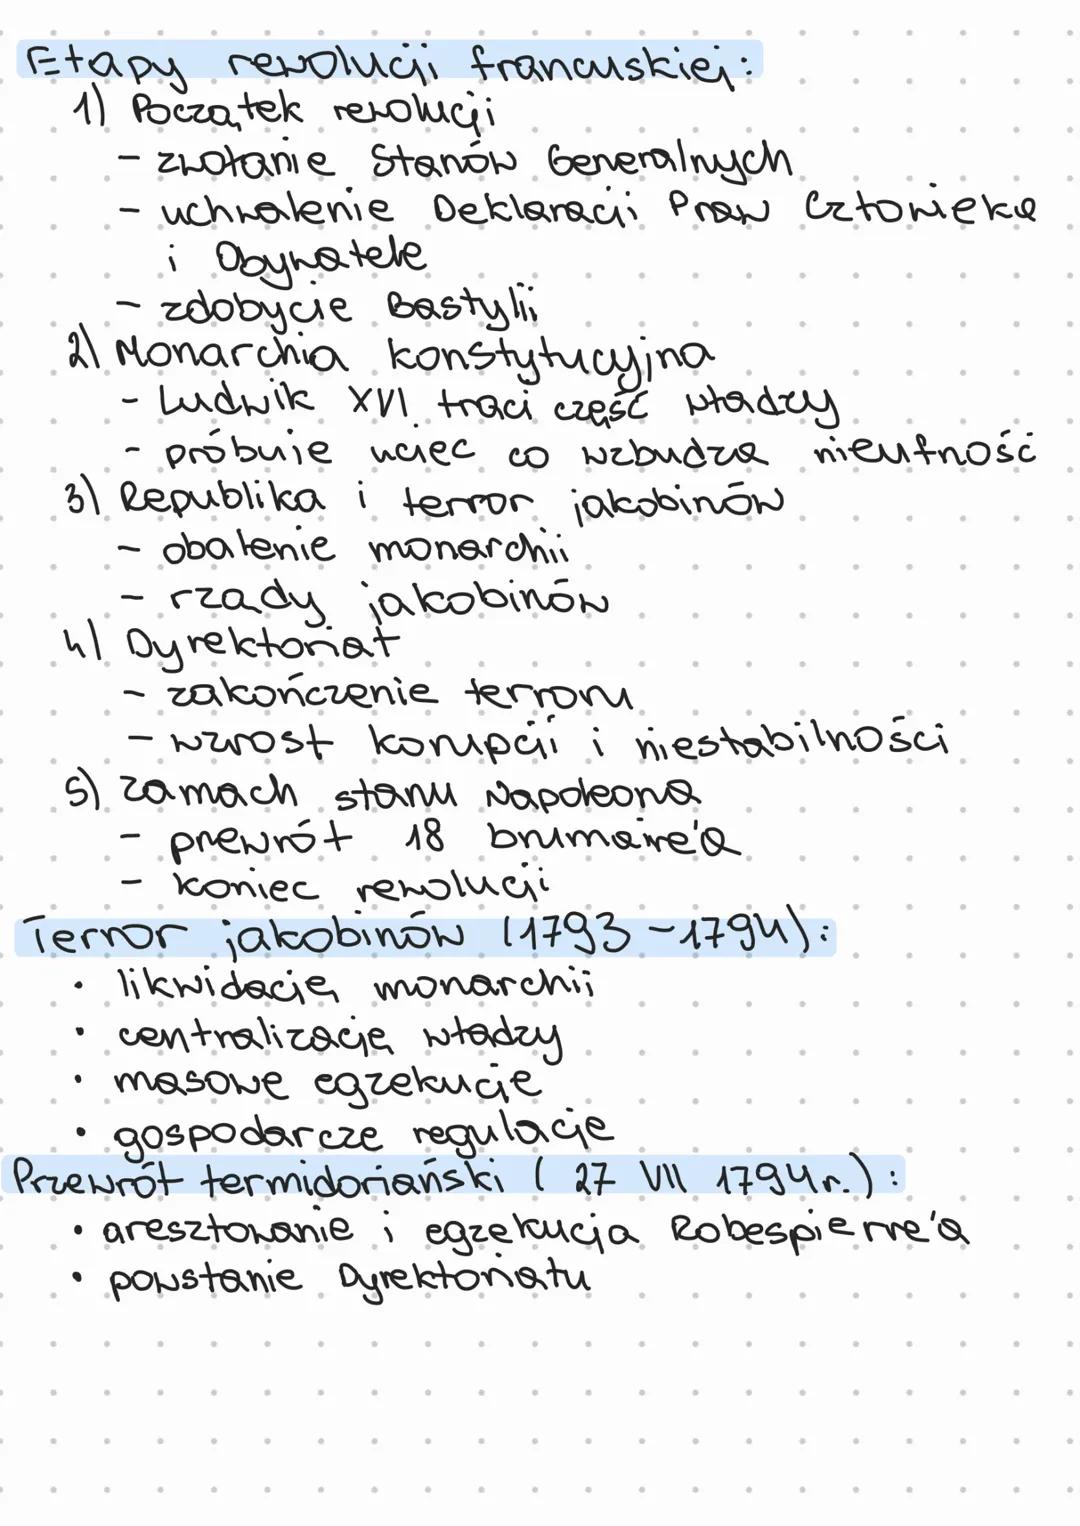 Etapy rewolucji francuskiej:
1) Początek rewolucji
- zwołanie Stanów Generalnych
- uchwalenie Deklaracji Praw Człowieka
i Obywatela
- zdobycie Bastylii
2) Monarchia konstytucyjna
- Ludwik XVI traci część władzy
- próbuje uciec co wzbudza nieufność
3) Republika i terror jakobinów
- obalenie monarchii
- rządy jakobinów
4) Dyrektoriat
- zakończenie terroru
- wzrost korupcji i niestabilności
5) zamach stanu Napoleona
- przewrót 18 brumaire'a
- koniec rewolucji
Terror jakobinów (1793-1794):
• likwidację monarchii
• centralizację władzy
• masowe egzekucje
• gospodarcze regulacje
Przewrót termidoriański (27 VII 1794r.):
• aresztowanie i egzekucja Robespierre'a
• powstanie Dyrektoriatu